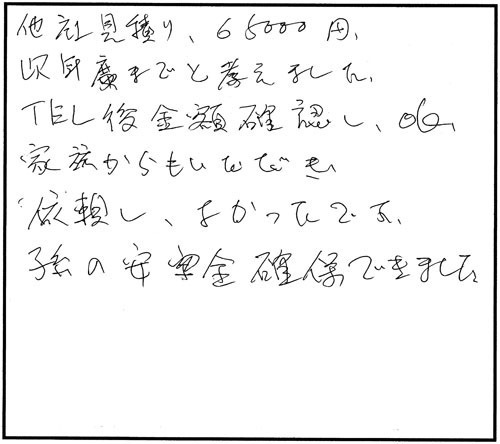 他社見積り、65000円、
以身廉までと考えました、
TEL後金額確認し、OK、
家族からもいただき、
依頼し、よかったです、
孫の安全確保できました